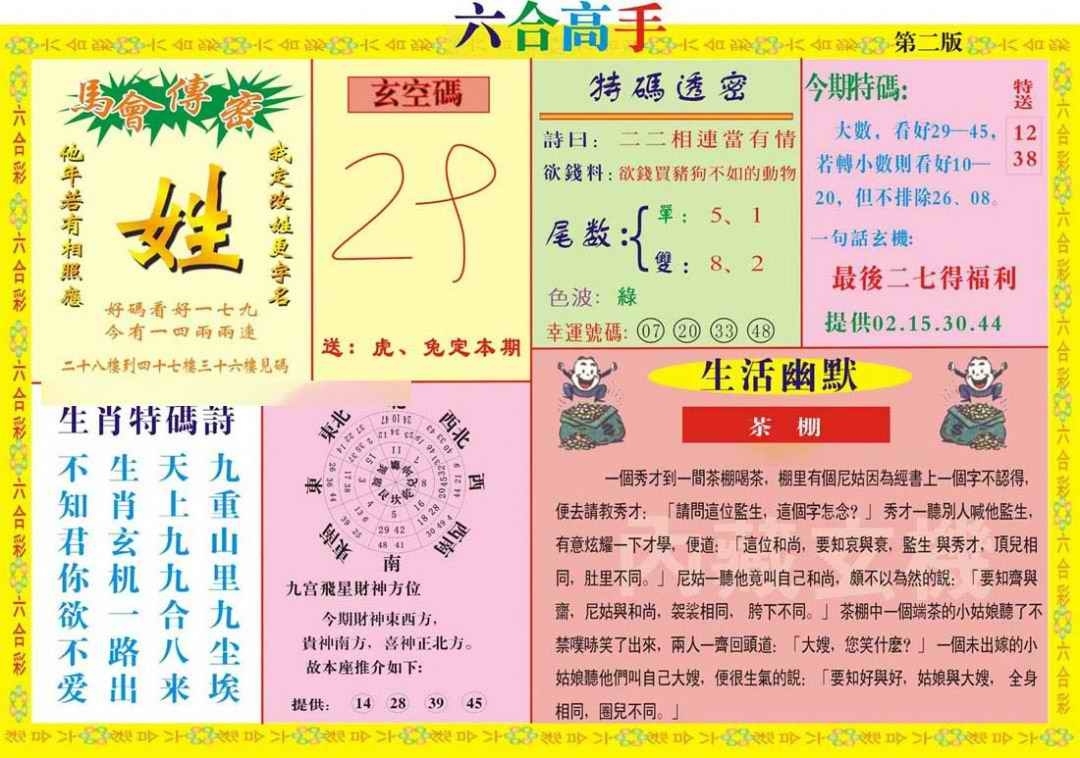 六合高手
第二版
馬會傳密
他年若有相照應
姓
我定改姓更字名
好碼看好一七九
今有一四兩兩連
二十八樓到四十七樓三十六樓見碼
玄空碼
29
送：虎、兔定本期
特碼透密
詩曰：二二相連當有情
欲錢料：欲錢買豬狗不如的動物
尾数：
單：5、1
雙：8、2
色波：綠
幸運號碼：07 20 33 48
今期特碼:
特送
12
38
大數，看好29—45，
若轉小數則看好10—
20，但不排除26、08。
一句話玄機:
最後二七得福利
提供02.15.30.44
生肖特碼詩
九重山里九尘埃
天上九九合八来
生肖玄机一路出
不知君你欲不爱
東北
西北
東
西
東南
西南
南
九宫飛星財神方位
今期財神東西方，
貴神南方，喜神正北方。
故本座推介如下:
提供: 14 28 39 45
生活幽默
茶棚
一個秀才到一間茶棚喝茶，棚里有個尼姑因為經書上一個字不認得，
便去請教秀才：「請問這位監生，這個字怎念？」秀才一聽別人喊他監生，
有意炫耀一下才學，便道：「這位和尚，要知哀與衰，監生與秀才，頂兒相
同，肚里不同。」尼姑一聽他竟叫自己和尚，頗不以為然的說：「要知齊與
齋，尼姑與和尚，袈裟相同，胯下不同。」茶棚中一個端茶的小姑娘聽了不
禁噗哧笑了出來，兩人一齊回頭道：「大嫂，您笑什麼？」一個未出嫁的小
姑娘聽他們叫自己大嫂，便很生氣的說：「要知好與好，姑娘與大嫂，全身
相同，圈兒不同。」
内藏玄機
六合彩